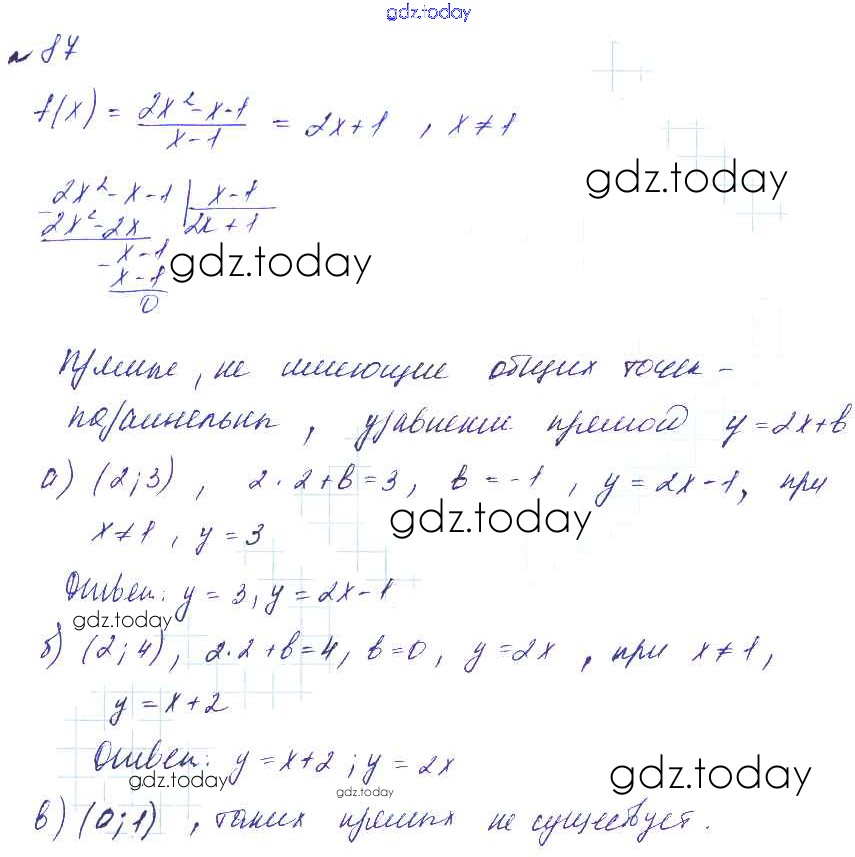 gdz.today
№ 87
f(x) = (2x² - x - 1)/(x - 1) = 2x + 1 , x ≠ 1
gdz.today
2x² - x - 1 | x - 1
2x² - 2x 2x + 1
x - 1
gdz.today
- x - 1
0
Прямые, не имеющие общих точек -
параллельны, уравнение прямой y = 2x + b
а) (2; 3) , 2 · 2 + b = 3, b = -1 , y = 2x - 1, при
x ≠ 1 , y = 3
gdz.today
Ответ: y = 3, y = 2x - 1
gdz.today
б) (2; 4), 2 · 2 + b = 4, b = 0, y = 2x , при x ≠ 1,
y = x + 2
Ответ: y = x + 2 ; y = 2x
gdz.today
gdz.today
gdz.today
в) (0; 1) , таких прямых не существует.